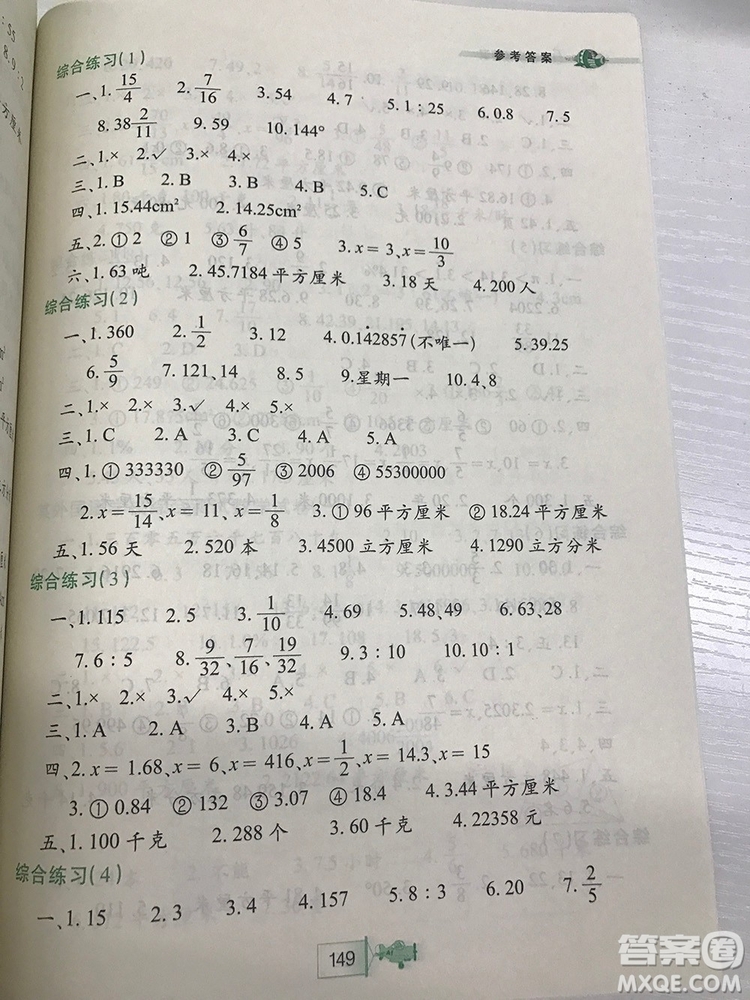 参考答案
综合练习(1)
一、1. 15/4 2. 7/16 3. 54 4. 7 5. 1∶25 6. 0.8 7. 5
8. 38 2/11 9. 59 10. 144°
二、1.× 2.✓ 3.× 4.×
三、1. B 2. B 3. B 4. B 5. C
四、1. 15.44cm² 2. 14.25cm²
五、2. ① 2 ② 1 ③ 6/7 ④ 5 3. x = 3、x = 10/3
六、1. 63 吨 2. 45.7184 平方厘米 3. 18 天 4. 200 人
综合练习(2)
一、1. 360 2. 1/2 3. 12 4. 0.1̇42857̇(不唯一) 5. 39.25
6. 5/9 7. 121、14 8. 5 9. 星期一 10. 4、8
二、1.× 2.× 3.✓ 4.× 5.×
三、1. C 2. A 3. C 4. A 5. A
四、1. ① 333330 ② 5/97 ③ 2006 ④ 55300000
2. x = 15/14、x = 11、x = 1/8 3. ① 96 平方厘米 ② 18.24 平方厘米
五、1. 56 天 2. 520 本 3. 4500 立方厘米 4. 1290 立方分米
综合练习(3)
一、1. 115 2. 5 3. 1/10 4. 69 5. 48、49 6. 63、28
7. 6∶5 8. 9/32、7/16、19/32 9. 3∶10 10. 10∶1
二、1.× 2.× 3.✓ 4.× 5.×
三、1. A 2. A 3. A 4. A 5. A
四、2. x = 1.68、x = 6、x = 416、x = 1/2、x = 14.3、x = 15
3. ① 0.84 ② 132 ③ 3.07 ④ 18.4 4. 3.44 平方厘米
五、1. 100 千克 2. 288 个 3. 60 千克 4. 22358 元
综合练习(4)
一、1. 15 2. 3 3. 4 4. 157 5. 8∶3 6. 20 7. 2/5
149
答案圈
MXQE.COM